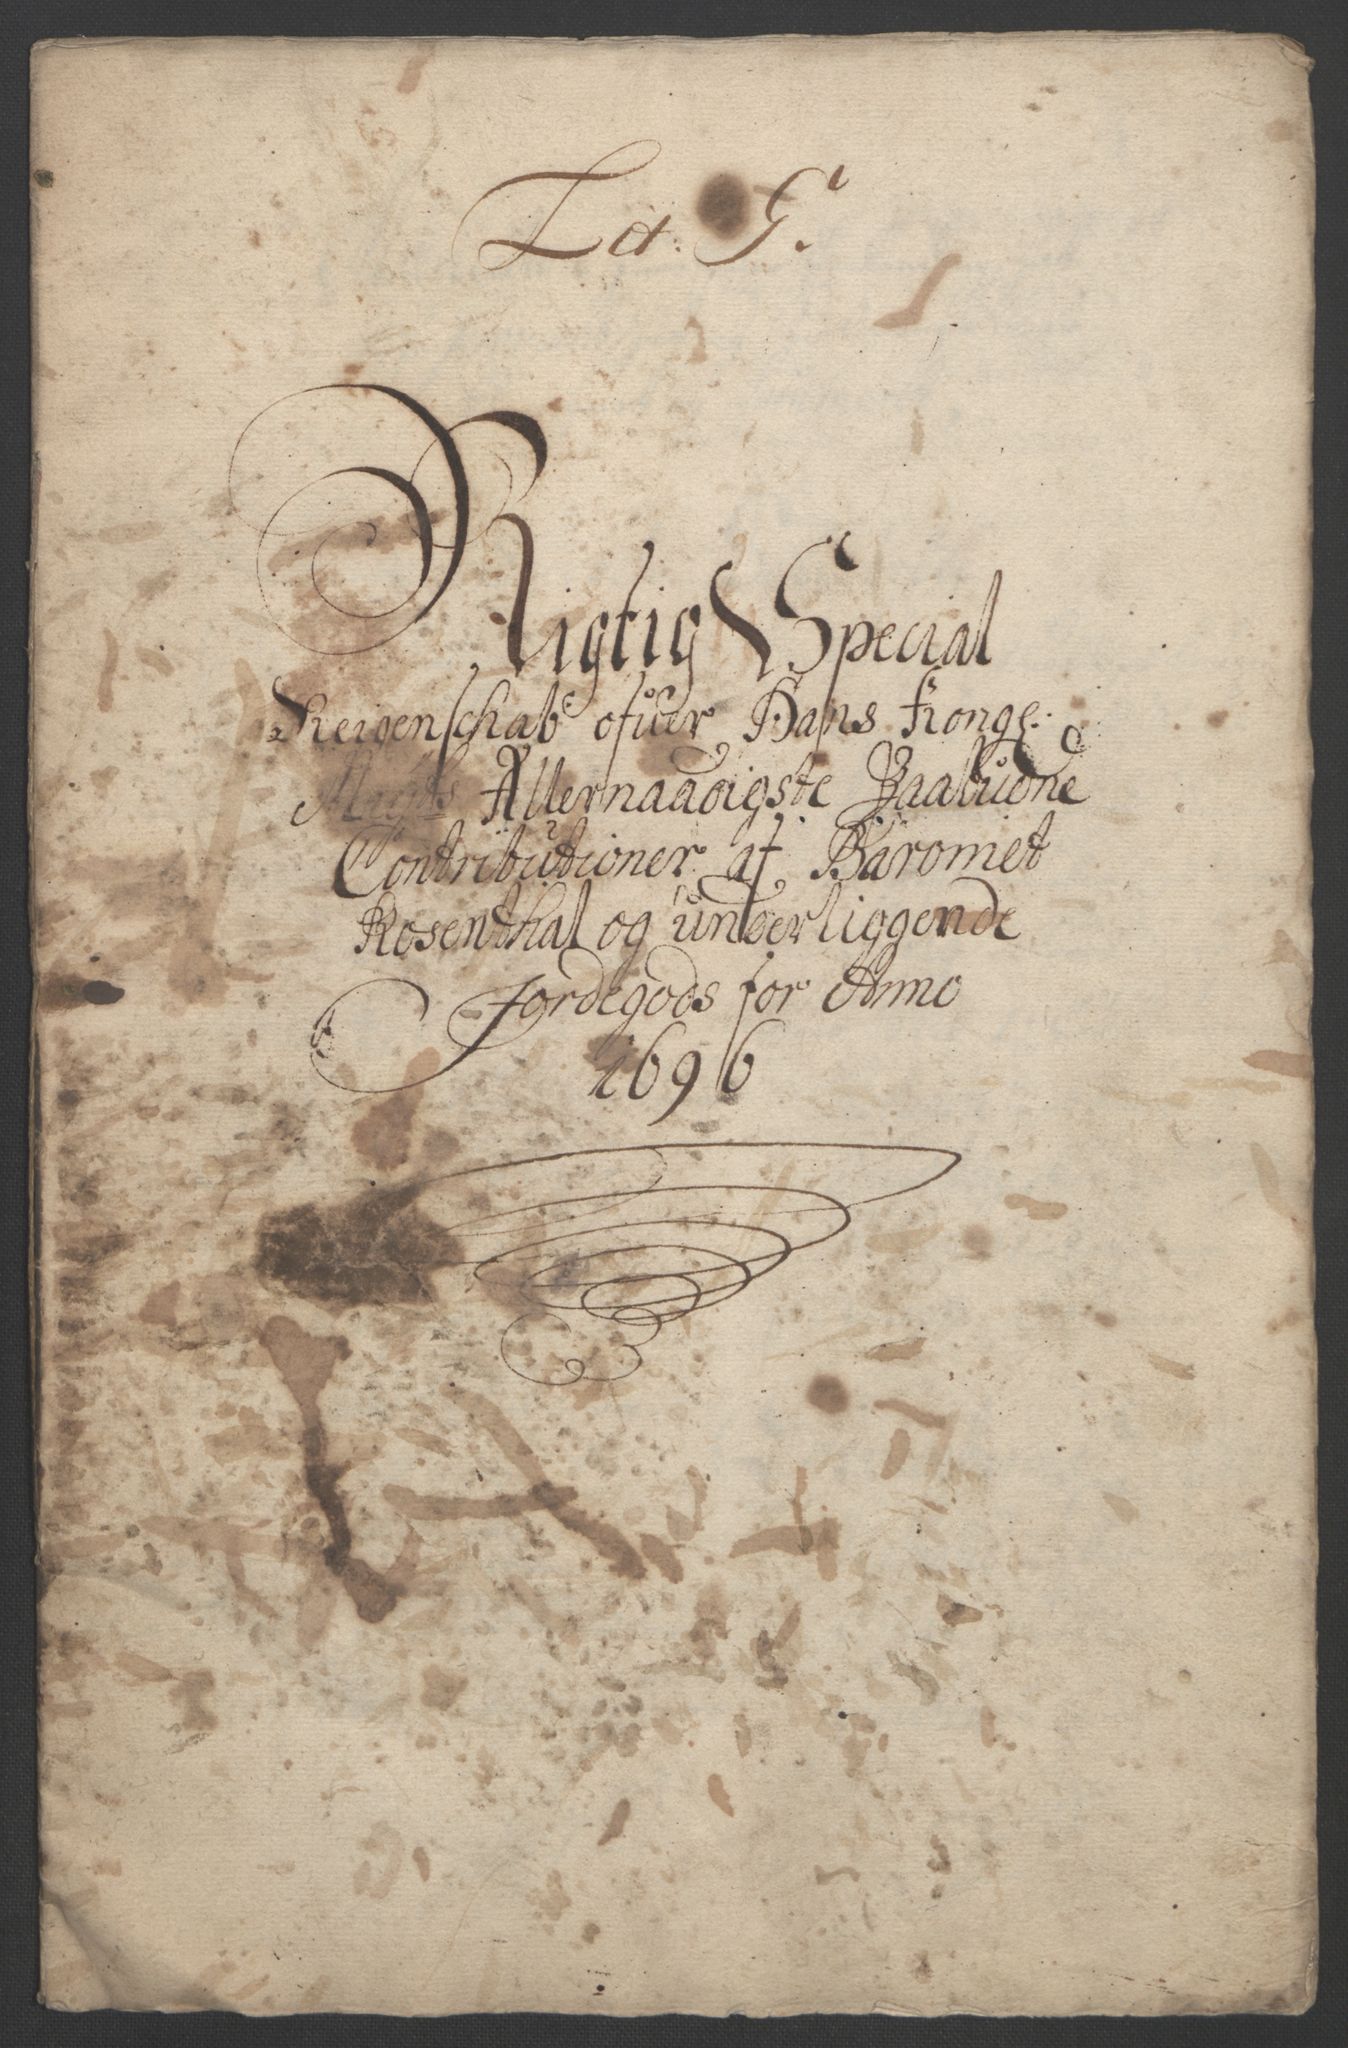 Lit. G.
Rigtig Special
Reigenschab ofuer Hans Konge:
Mayts Allernaadigste Paabudne
Contributioner af Baroniet
Rosenthal og underliggende
Jordegods for Anno
1696